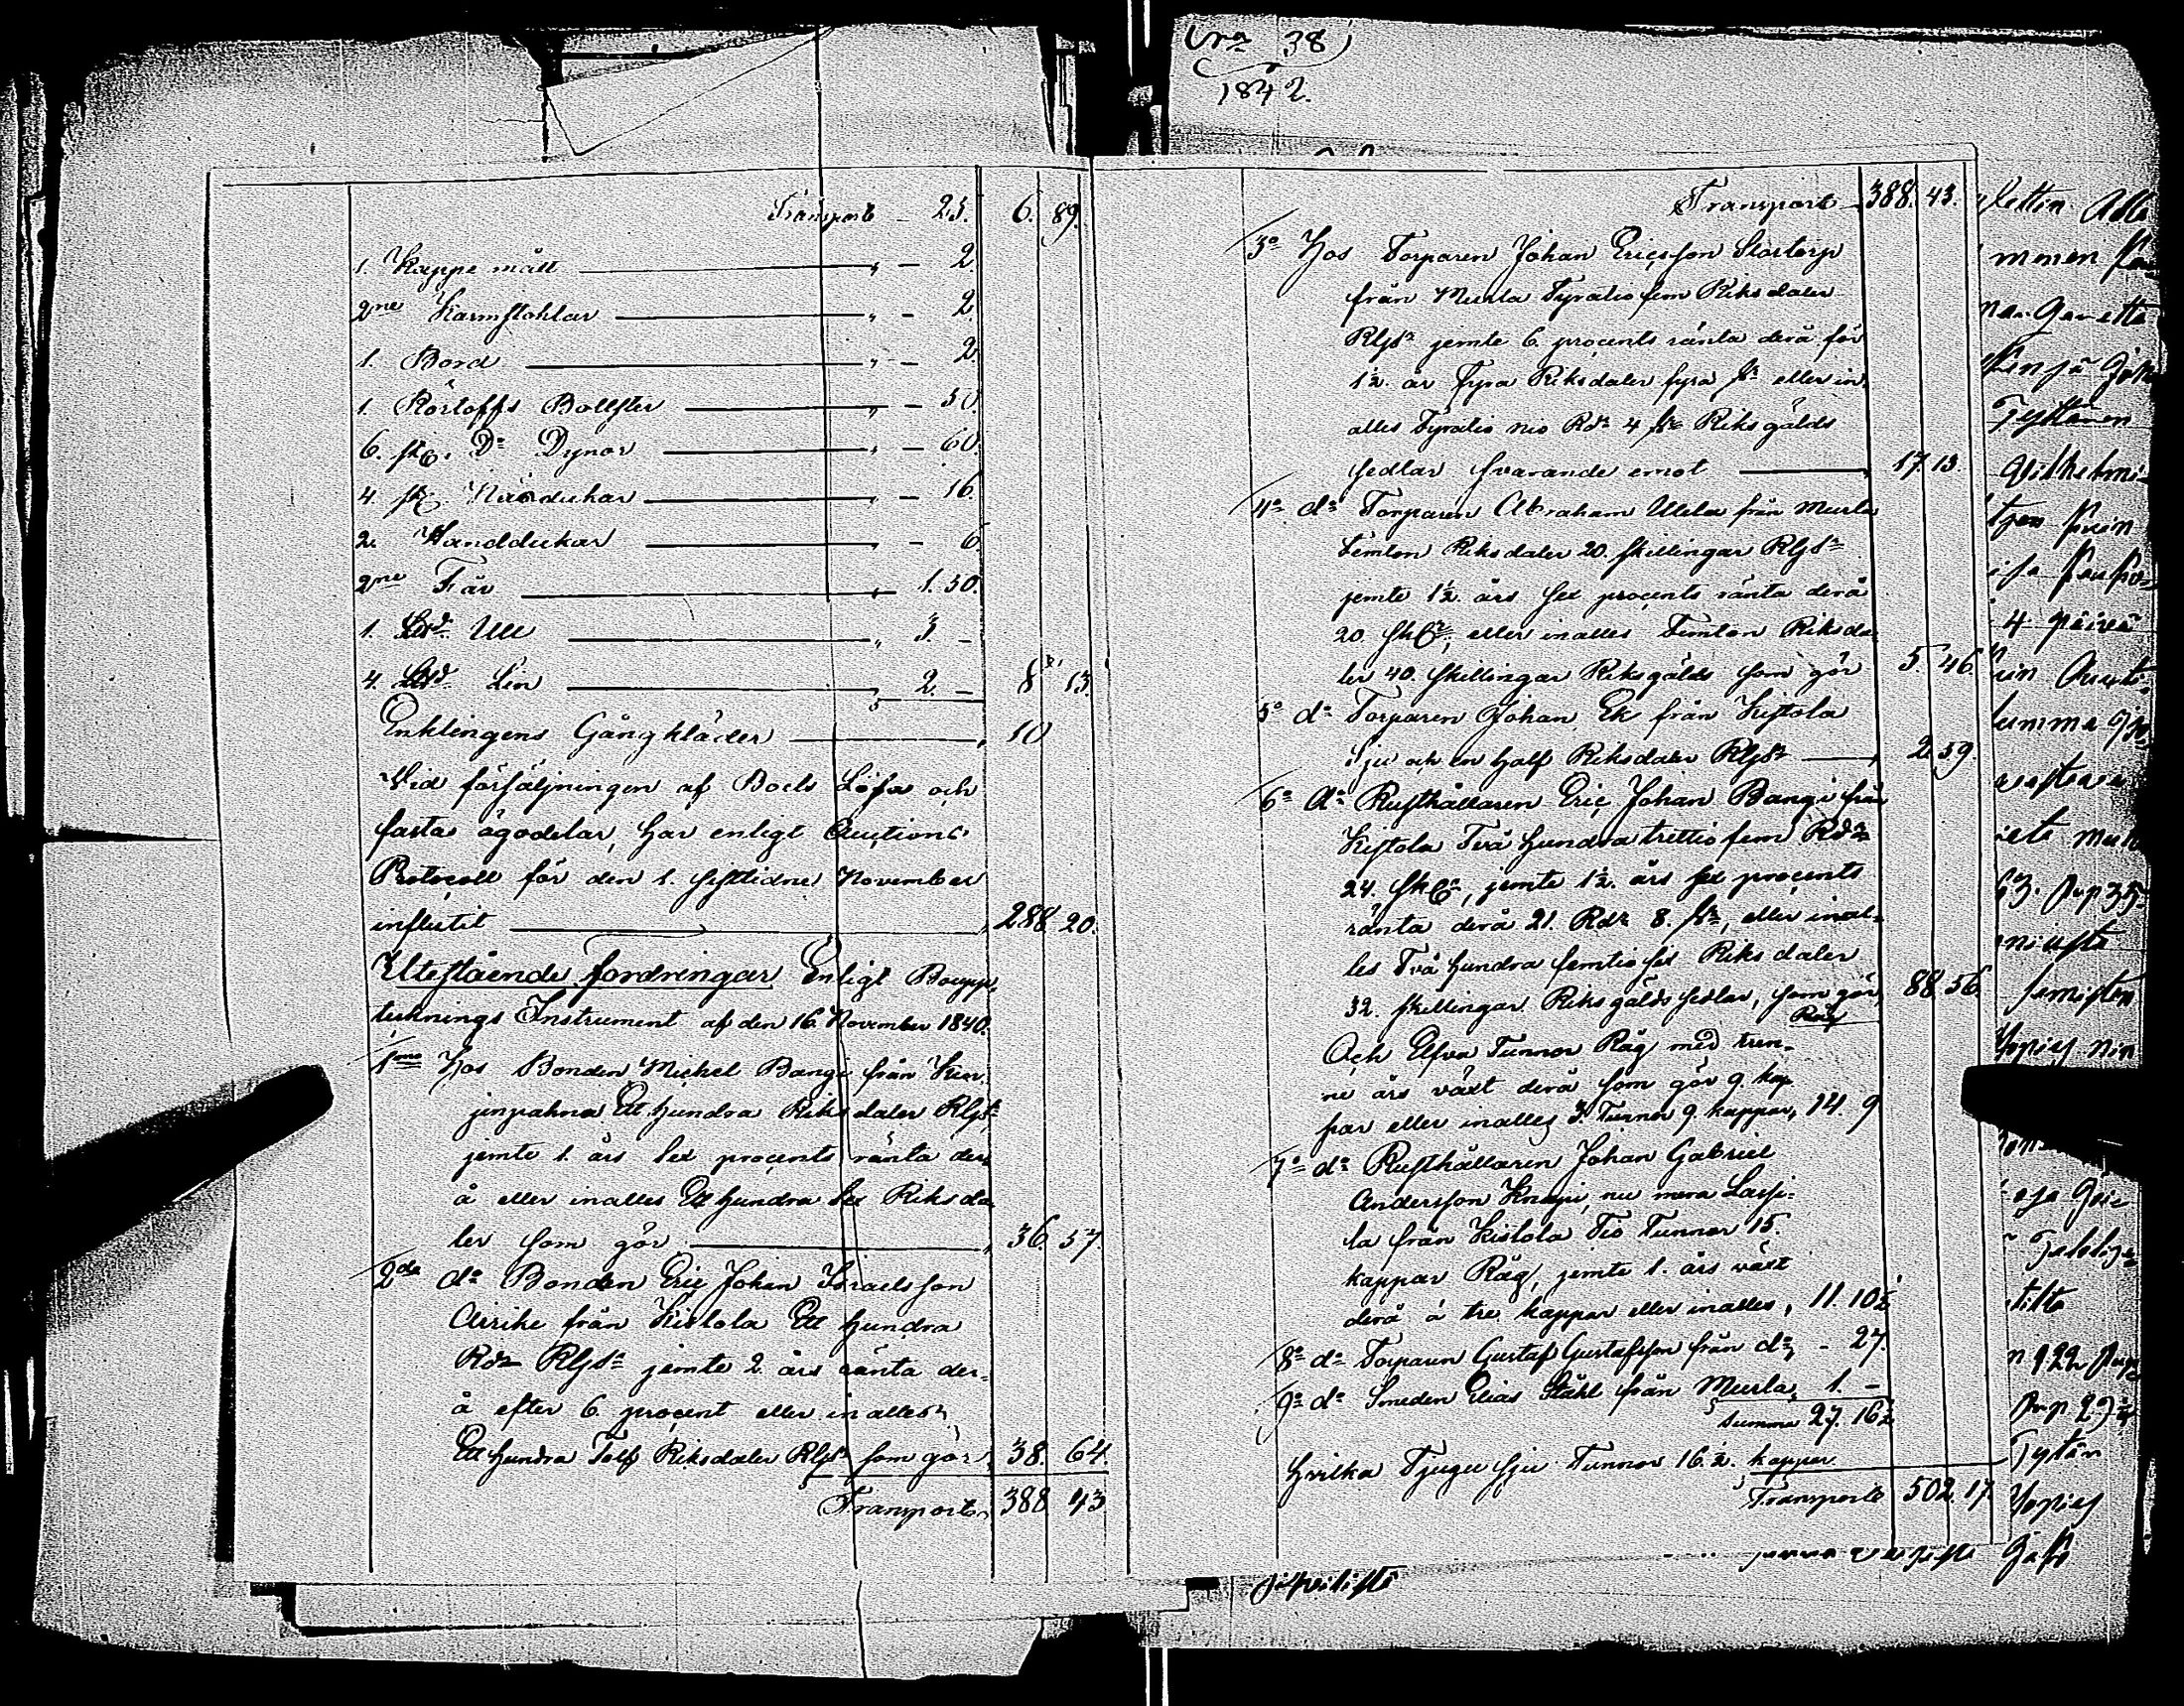 Transport — 25. 6. 89.
1. Kappe mått „ — 2.
2ne Karmstohlar „ — 2.
1. Bord „ — 2.
1. Rörtoffs Bollster „ — 50.
6. st. Do Dynor „ — 60.
4. st. Näsdukar „ — 16.
2. Handdukar „ — 6.
2ne Får „ 1. 50.
1. Lisd Ull „ 3. —
4. Lisd Lin „ 2. — 8 13.
Enklingens Gångkläder „ 10
Vid försäljningen af Boets Lösa och
fasta ägodelar, har enligt Auctions
Protocoll för den 1. sistlidne November
influtit „ 288 20.
Utestående fordringar Enligt Boupp-
tecknings Instrument af den 16 November 1840.
1mo Hos Bonden Michel Bangi från
Ett hundra Riksdaler Rgs
jemte 1. års Sex procents ränta der-
å eller inalles Ett hundra Sex Riksda
ler som gör „ 36. 57.
2do do Bonden Eric Johan Israelsson
Airike från Kistola Ett hundra
Rdr Rgs jemte 2. års ränta der-
å efter 6. procent eller inalles
Ett hundra Tolf Riksdaler Rgs som gör 38. 64.
Transport 388 43
No 38
1842.
Transport 388. 43.
3o Hos Torparen Johan Ericsson Stortorp
från Murla Fyratio fem Riksdaler
Rgs jemte 6. procents ränta derå för
1½. år Fyra Riksdaler fyra sk eller in
alles Fyratio nio Rdr 4 sk Riksgälds
sedlar svarande emot „ 17. 13.
4o do Torparen Abraham Ulela från Murla
Femton Riksdaler 20. skillingar Rgs
jemte 1½. års sex procents ränta derå
20 sk, eller inalles Femton Riksda-
ler 40. skillingar Riksgälds som gör 5 46
5o do Torparen Johan Ek från Kistola
Sju och en half Riksdaler Rgs „ 2. 59.
6o do Rusthållaren Eric Johan Bangi från
Kistola Två hundra trettio fem Rdr
24. sk, jemte 1½. års sex procents
ränta derå 21. Rdr 8. sk, eller inal-
les Två hundra femtio sex Riksdaler
32. skillingar Riksgälds sedlar, som gör 88. 56.
Råg
Och Elfva Tunnor Råg med tren-
ne års växt derå som gör 9. kap
par eller inalles 3. Tunnor 9. kappar, 14. 9
7o do Rusthållaren Johan Gabriel
Andersson Knapi, nu mera Lassi-
la från Kistola Tio Tunnor 15.
kappar Råg, jemte 1. års växt
derå á tre kappar eller inalles, 11. 10½
8o do Torparen Gustaf Gustafsson från do, - 27.
9o do Smeden Elias Ståhl från Murla, 1. —
Summa 27. 16½
hvilka Tjugu sju Tunnor 16.½. kappar
Transport 502. 17.